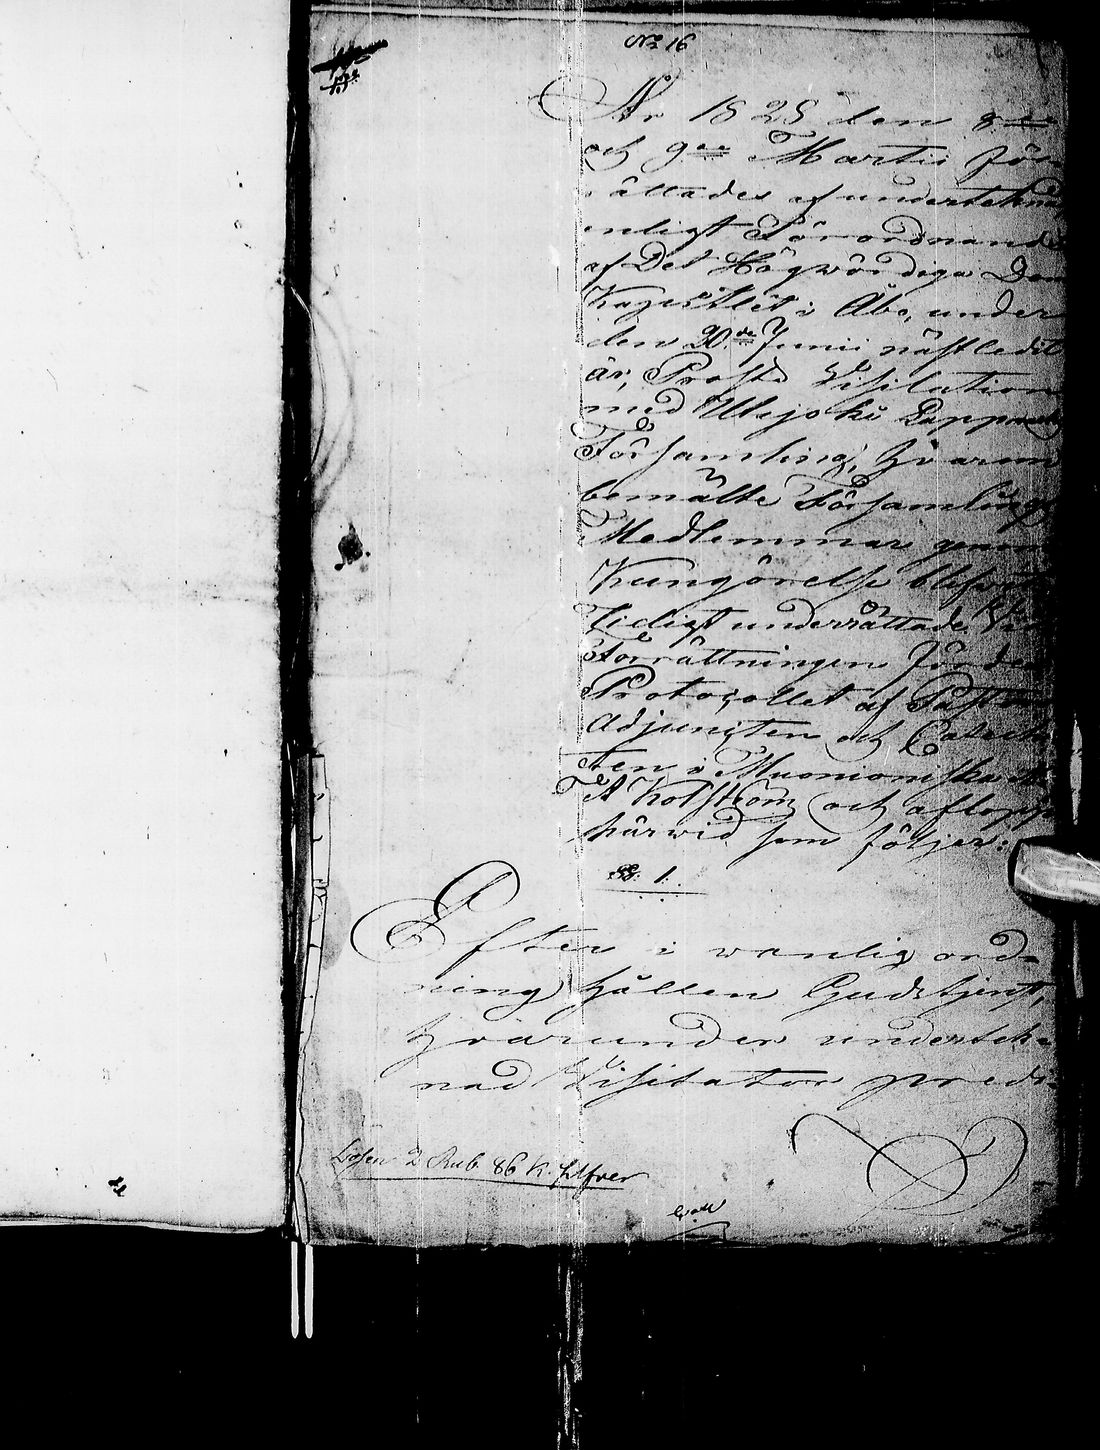 No 16
År 1828 den 8de
och 9de Martii för-
rättades af undertekna
enligt Förordnande
af Det Högwördiga Dom
Kapitlet i Åbo, under
den 20de Junii nästledit
år, Prosts Visitation
med Utsjoki Lappmarks
Församling, hvarom
bemälte Församlings
Medlemmar genom
Kungörelse blifvit
tidigt underrättade. Vid
Förrättningen fördes
Protocollet af Pastors
Adjuncten och Cateche
ten i Muonioniska
A Kolström och aflopp
härwid som följer:
§. 1.
Efter i wanlig ord-
ning hållen Gudstjenst,
hvarunder underteck-
nad Visitator predi-
Lösen 2 Rub. 86 K. Silfver